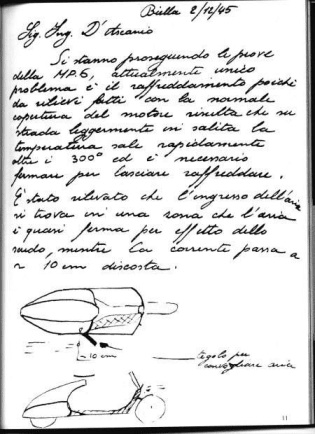 Biella 2/12/45
Sig. Ing. D'Ascanio
Si stanno proseguendo le prove
della MP.6, attualmente unico
problema è il raffreddamento poichè
da rilievi fatti con la normale
copertura del motore risulta che su
strada leggermente in salita la
temperatura sale rapidamente
oltre i 300° ed è necessario
fermare per lasciare raffreddare.
È stato rilevato che l'ingresso dell'aria
si trova in una zona che l'aria
è quasi ferma per effetto dello
scudo, mentre la corrente passa a
~ 10 cm discosta.
~10 cm
tegolo per
convogliare aria
11